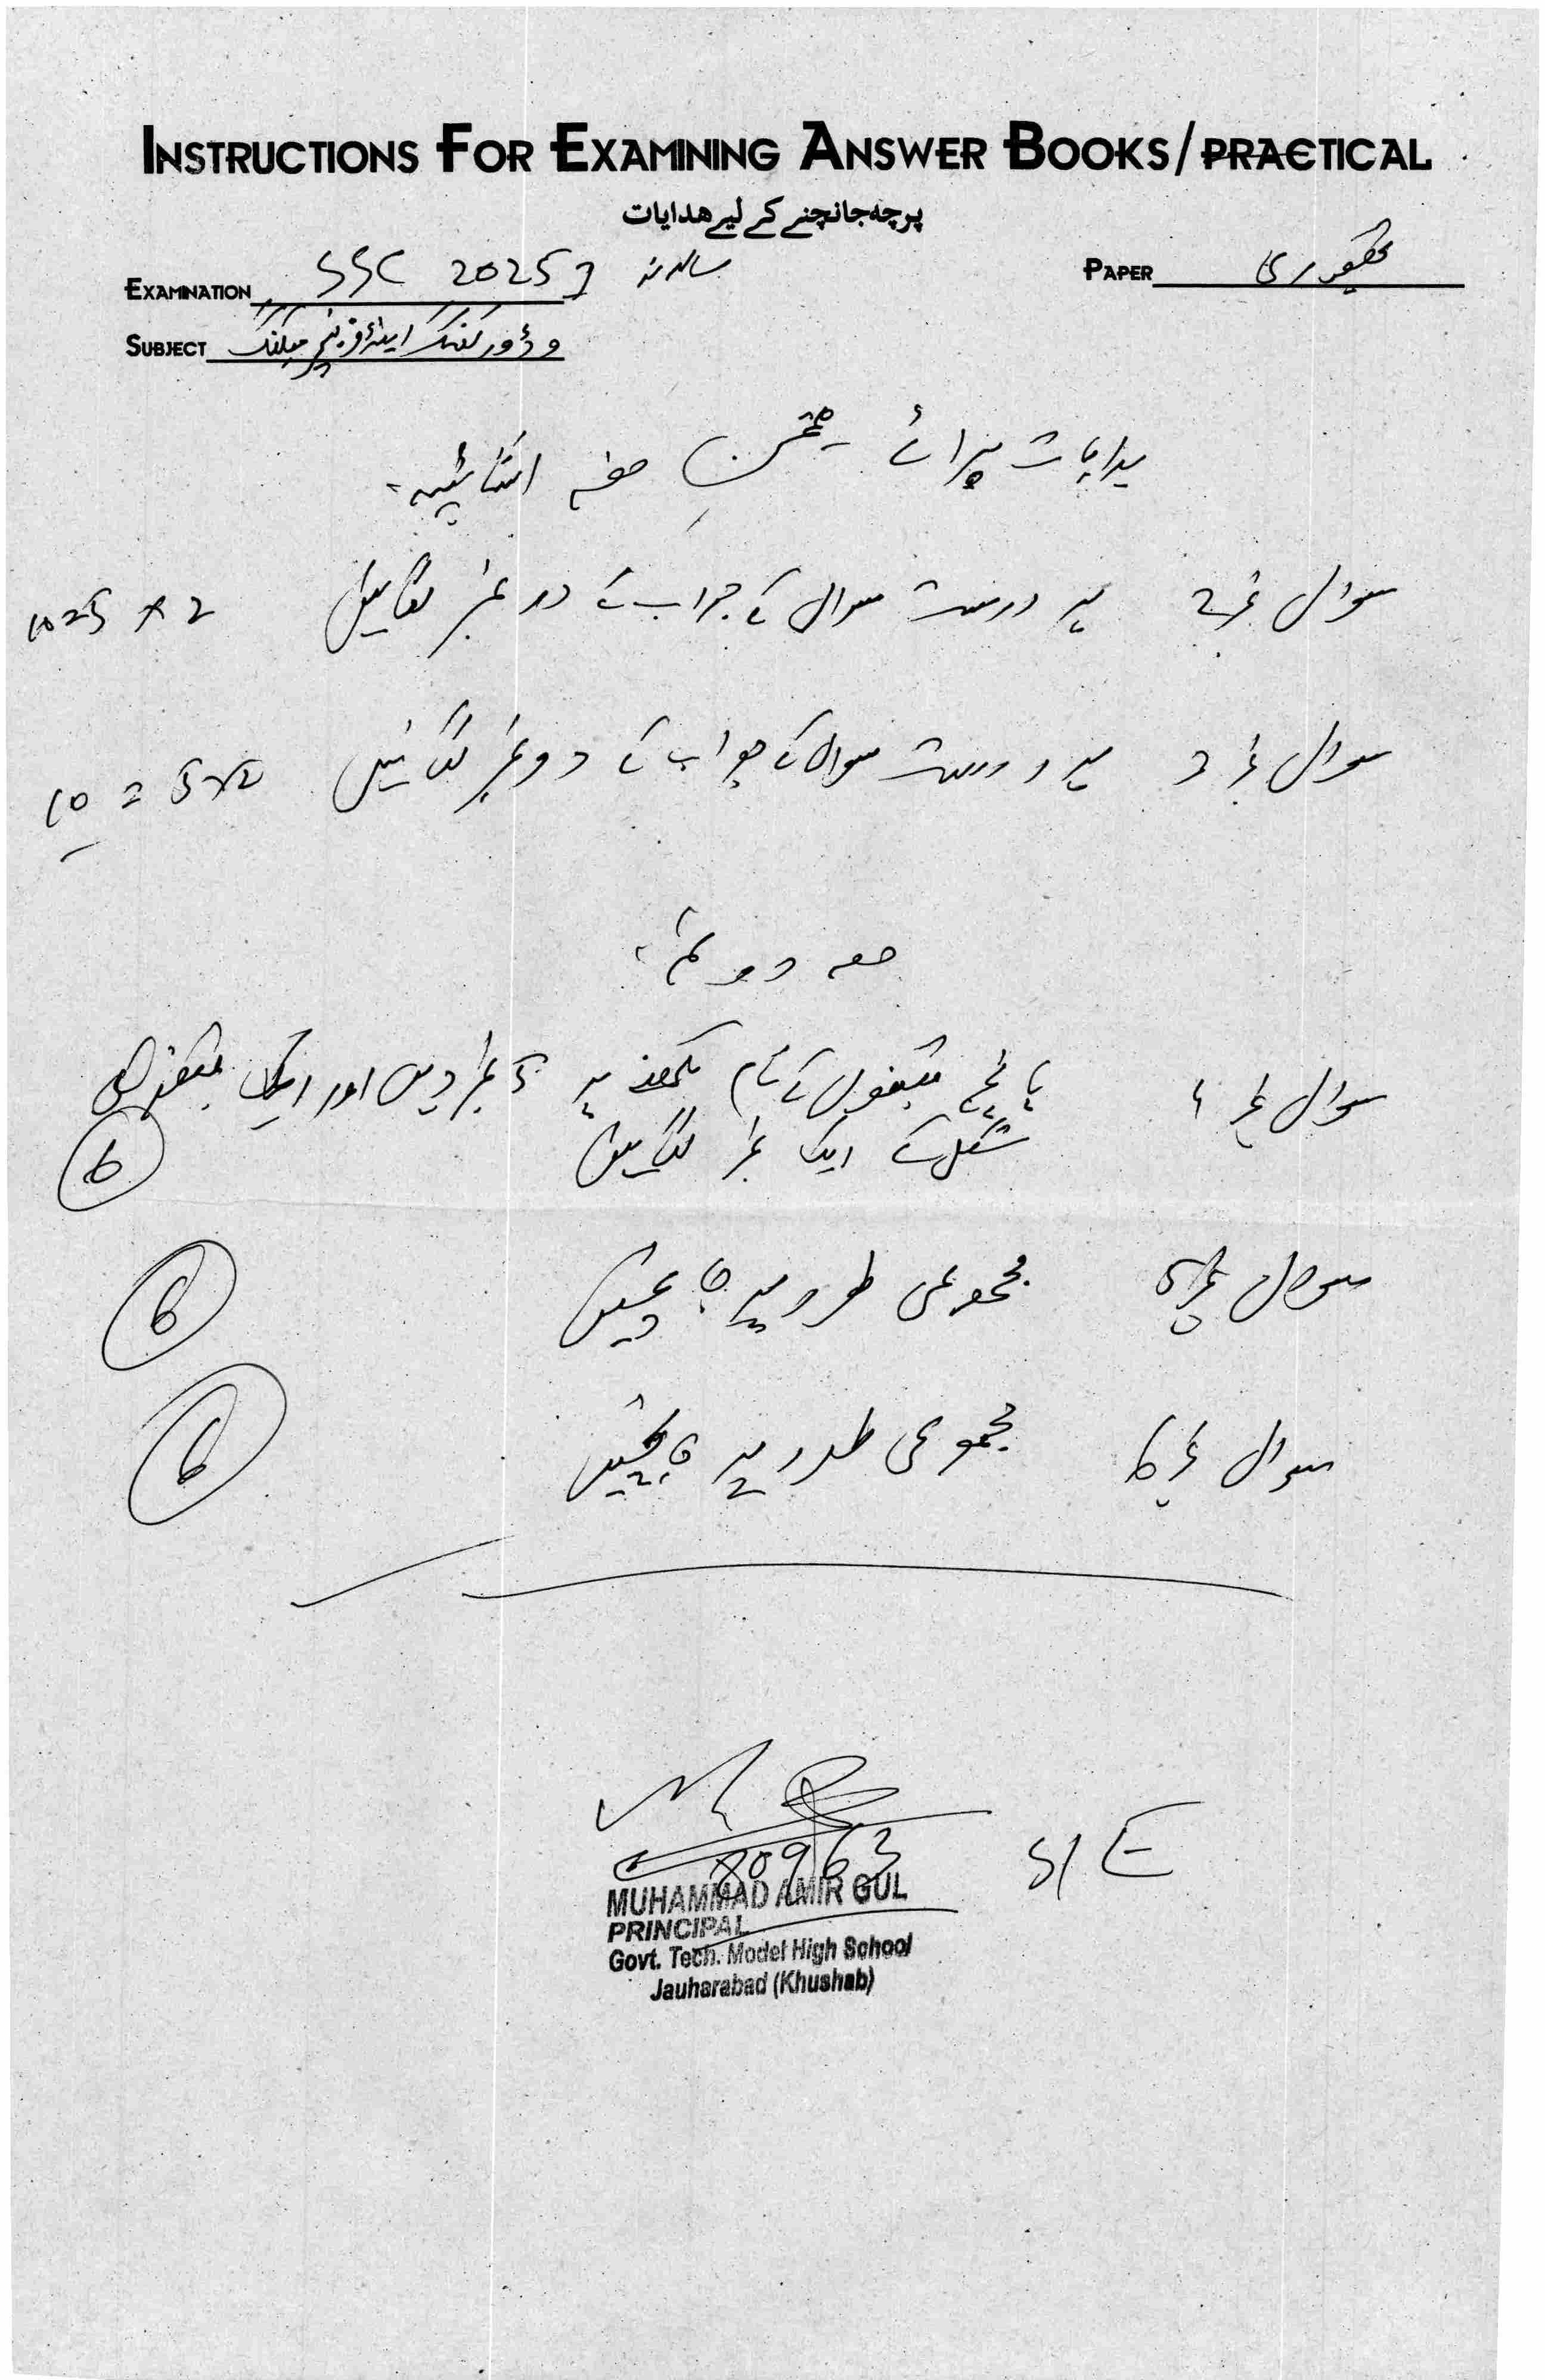 INSTRUCTIONS FOR EXAMINING ANSWER BOOKS/PRACTICAL
پرچہ جانچنے کے لیے ھدایات
EXAMINATION SSC 2025 سالانہ PAPER تھیوری
SUBJECT وڈ ورکنگ اینڈ فرنیچر میکنگ
ہدایات برائے ممتحن حصہ انشائیہ
سوال نمبر 2 ہر درست سوال کے جواب کے دو نمبر لگائیں 2 × 5 = 10
سوال نمبر 3 ہر درست سوال کے جواب کے دو نمبر لگائیں 2×5 = 10
حصہ دوئم
سوال نمبر 4 پانچ کے نام لکھنے پر 5 نمبر دیں اور ایک کی
شکل کے ایک نمبر لگائیں 6
سوال نمبر 5 مجموعی طور پر جانچیں 6
سوال نمبر 6 مجموعی طور پر جانچیں 6
80963 S/E
MUHAMMAD AMIR GUL
PRINCIPAL
Govt. Tech. Model High School
Jauharabad (Khushab)